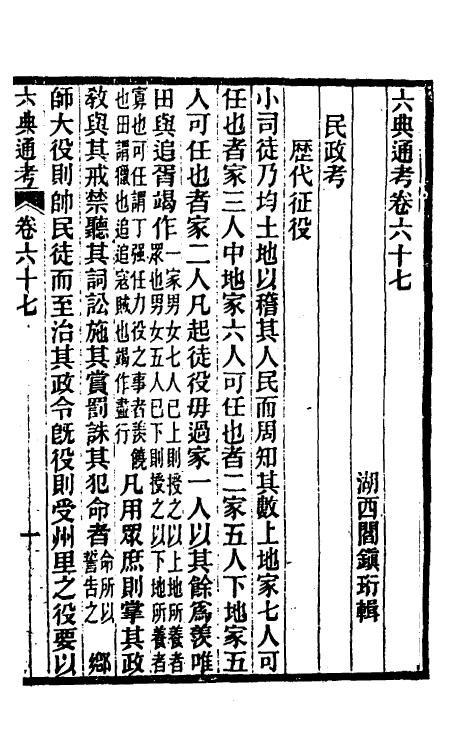 六典通考卷六十七
湖西閻鎭珩輯
民政考
歷代征役
小司徒乃均土地以稽其人民而周知其數上地家七人可
任也者家三人中地家六人可任也者二家五人下地家五
人可任也者家二人凡起徒役毋過家一人以其餘爲羨唯
田與追胥竭作一家男女七人已上則授之以上地所養者
眾也男女五人已下則授之以下地所養者
寡也可任謂丁强任力役之事者羨饒
也田謂獵也追追寇賊也竭作盡行凡用眾庶則掌其政
敎與其戒禁聽其詞訟施其賞罰誅其犯命者命所以
誓告之鄉
師大役則帥民徒而至治其政令旣役則受州里之役要以
六典通考 卷六十七 十